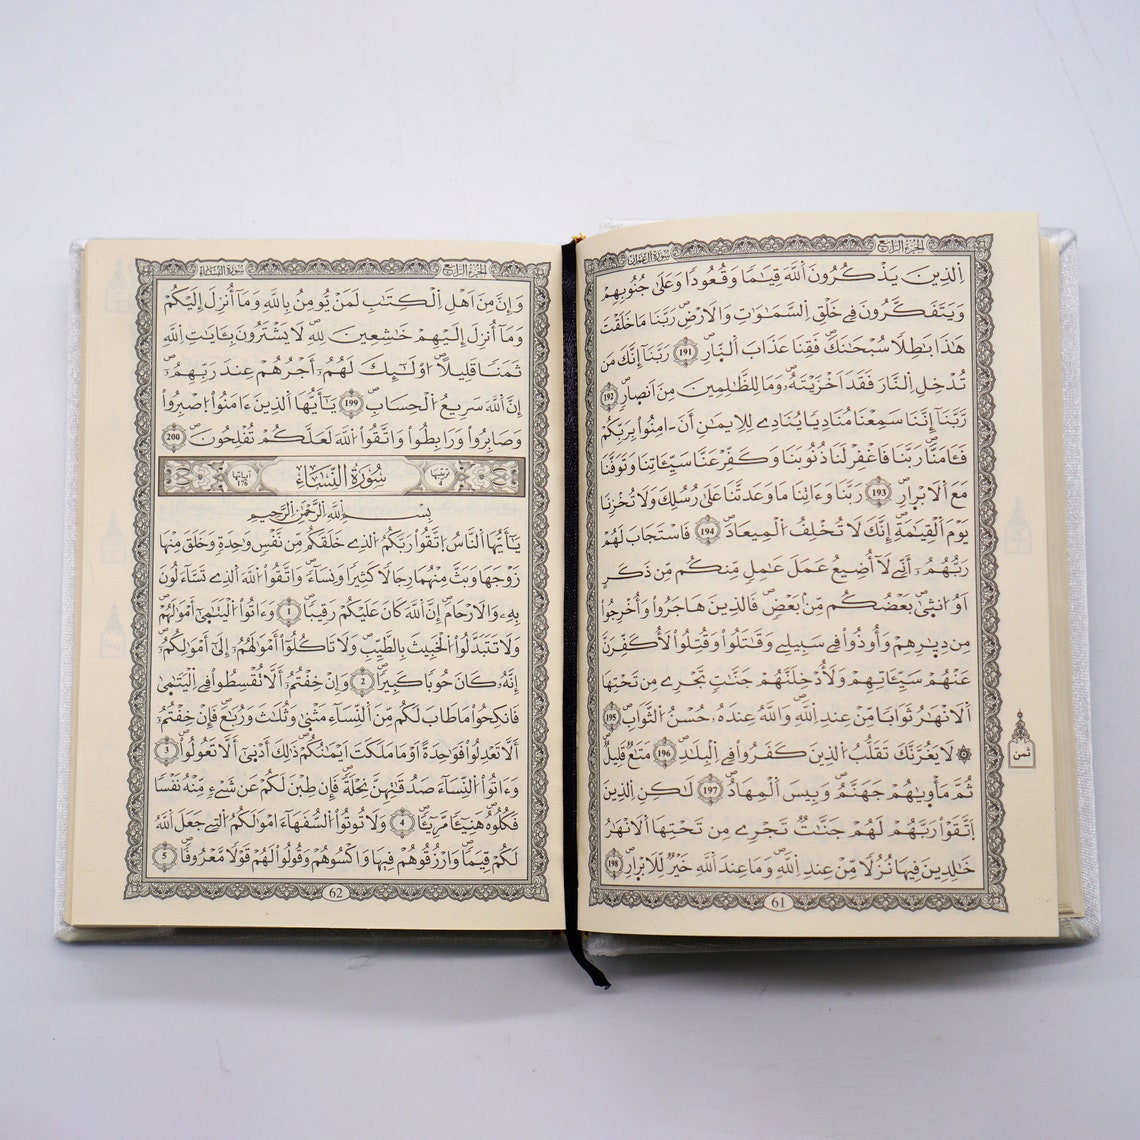 سورة آل عمران
الجزء الرابع
اَ۬لذِينَ يَذْكُرُونَ اَ۬للَّهَ قِيَٰماٗ وَقُعُوداٗ وَعَلَىٰ جُنُوبِهِمْ
وَيَتَفَكَّرُونَ فِے خَلْقِ اِ۬لسَّمَٰوَٰتِ وَالَارْضِۖ رَبَّنَا مَا خَلَقْتَ
هَٰذَا بَٰطِلاٗۖ سُبْحَٰنَكَۖ فَقِنَا عَذَابَ اَ۬لنّ۪ارِۖ 191 رَبَّنَآ إِنَّكَ مَن
تُدْخِلِ اِ۬لنَّارَ فَقَدَ اَخْزَيْتَهُۥۖ وَمَا لِلظَّٰلِمِينَ مِنَ اَنص۪ارٖۖ 192
رَّبَّنَآ إِنَّنَا سَمِعْنَا مُنَادِياٗ يُنَادِے لِلِايمَٰنِ أَنَ اٰمِنُواْ بِرَبِّكُمْ
فَـَٔامَنَّاۖ رَبَّنَا فَاغْفِرْ لَنَا ذُنُوبَنَا وَكَفِّرْ عَنَّا سَيِّـَٔاتِنَا وَتَوَفَّنَا
مَعَ اَ۬لَابْر۪ارِۖ 193 رَبَّنَا وَءَاتِنَا مَا وَعَدتَّنَا عَلَىٰ رُسُلِكَ وَلَا تُخْزِنَا
يَوْمَ اَ۬لْقِيَٰمَةِۖ إِنَّكَ لَا تُخْلِفُ اُ۬لْمِيعَادَۖ 194 فَاسْتَجَابَ لَهُمْ
رَبُّهُمُۥٓ أَنِّے لَآ أُضِيعُ عَمَلَ عَٰمِلٖ مِّنكُم مِّن ذَكَرٍ
اَوُ ا۟نث۪ىٰۖ بَعْضُكُم مِّنۢ بَعْضٖۖ فَالذِينَ هَاجَرُواْ وَأُخْرِجُواْ
مِن دِيٰ۪رِهِمْ وَأُوذُواْ فِے سَبِيلِے وَقَٰتَلُواْ وَقُتِلُواْ لَأُكَفِّرَنَّ
عَنْهُمْ سَيِّـَٔاتِهِمْ وَلَأُدْخِلَنَّهُمْ جَنَّٰتٖ تَجْرِے مِن تَحْتِهَا
اَ۬لَانْهَٰرُ ثَوَاباٗ مِّنْ عِندِ اِ۬للَّهِۖ وَاللَّهُ عِندَهُۥ حُسْنُ اُ۬لثَّوَابِۖ 195
۞ لَا يَغُرَّنَّكَ تَقَلُّبُ اُ۬لذِينَ كَفَرُواْ فِے اِ۬لْبِلَٰدِۖ 196 مَتَٰعٞ قَلِيلٞ
ثُمَّ مَأْو۪يٰهُمْ جَهَنَّمُۖ وَبِيسَ اَ۬لْمِهَادُۖ 197 لَٰكِنِ اِ۬لذِينَ
اَ۪تَّقَوْاْ رَبَّهُمْ لَهُمْ جَنَّٰتٞ تَجْرِے مِن تَحْتِهَا اَ۬لَانْهَٰرُ
خَٰلِدِينَ فِيهَا نُزُلاٗ مِّنْ عِندِ اِ۬للَّهِۖ وَمَا عِندَ اَ۬للَّهِ خَيْرٞ لِّلَابْر۪ارِۖ 198
ثمن
61
سورة النساء
الجزء الرابع
وَإِنَّ مِنَ اَهْلِ اِ۬لْكِتَٰبِ لَمَنْ يُّومِنُ بِاللَّهِ وَمَآ أُنزِلَ إِلَيْكُمْ
وَمَآ أُنزِلَ إِلَيْهِمْ خَٰشِعِينَ لِلهِۖ لَا يَشْتَرُونَ بِـَٔايَٰتِ اِ۬للَّهِ
ثَمَناٗ قَلِيلاًۖ ا۟وْلَٰٓئِكَ لَهُمُۥٓ أَجْرُهُمْ عِندَ رَبِّهِمُۥٓۖ
إِنَّ اَ۬للَّهَ سَرِيعُ اُ۬لْحِسَابِۖ 199 يَٰٓأَيُّهَا اَ۬لذِينَ ءَامَنُواْ اُ۪صْبِرُواْ
وَصَابِرُواْ وَرَابِطُواْ وَاتَّقُواْ اُ۬للَّهَ لَعَلَّكُمْ تُفْلِحُونَۖ 200
ترتيبها 4 سُورَةُ النِّسَاءِ آياتها 176
بِسْمِ اللَّهِ الرَّحْمَٰنِ الرَّحِيمِ
يَٰٓأَيُّهَا اَ۬لنَّاسُ اُ۪تَّقُواْ رَبَّكُمُ اُ۬لذِے خَلَقَكُم مِّن نَّفْسٖ وَٰحِدَةٖ وَخَلَقَ مِنْهَا
زَوْجَهَا وَبَثَّ مِنْهُمَا رِجَالاٗ كَثِيراٗ وَنِسَآءٗۖ وَاتَّقُواْ اُ۬للَّهَ اَ۬لذِے تَسَّآءَلُونَ
بِهِۦ وَالَارْحَامَۖ إِنَّ اَ۬للَّهَ كَانَ عَلَيْكُمْ رَقِيباٗۖ 1 وَءَاتُواْ اُ۬لْيَتَٰم۪يٰٓ أَمْوَٰلَهُمْۖ
وَلَا تَتَبَدَّلُواْ اُ۬لْخَبِيثَ بِالطَّيِّبِۖ وَلَا تَاكُلُوٓاْ أَمْوَٰلَهُمُۥٓ إِلَىٰٓ أَمْوَٰلِكُمُۥٓۖ
إِنَّهُۥ كَانَ حُوباٗ كَبِيراٗۖ 2 وَإِنْ خِفْتُمُۥٓ أَلَّا تُقْسِطُواْ فِے اِ۬لْيَتَٰم۪ىٰ
فَانكِحُواْ مَا طَابَ لَكُم مِّنَ اَ۬لنِّسَآءِ مَثْن۪ىٰ وَثُلَٰثَ وَرُبَٰعَۖ فَإِنْ خِفْتُمُۥٓ
أَلَّا تَعْدِلُواْ فَوَٰحِدَةً اَوْ مَا مَلَكَتَ اَيْمَٰنُكُمْۖ ذَٰلِكَ أَدْن۪ىٰٓ أَلَّا تَعُولُواْۖ 3
وَءَاتُواْ اُ۬لنِّسَآءَ صَدُقَٰتِهِنَّ نِحْلَةٗۖ فَإِن طِبْنَ لَكُمْ عَن شَےْءٖ مِّنْهُ نَفْساٗ
فَكُلُوهُ هَنِيٓـٔاٗ مَّرِيٓـٔاٗۖ 4 وَلَا تُوتُواْ اُ۬لسُّفَهَآءَ امْوَٰلَكُمُ اُ۬لتِے جَعَلَ اَ۬للَّهُ
لَكُمْ قِيَماٗۖ وَارْزُقُوهُمْ فِيهَا وَاكْسُوهُمْ وَقُولُواْ لَهُمْ قَوْلاٗ مَّعْرُوفاٗۖ 5
62